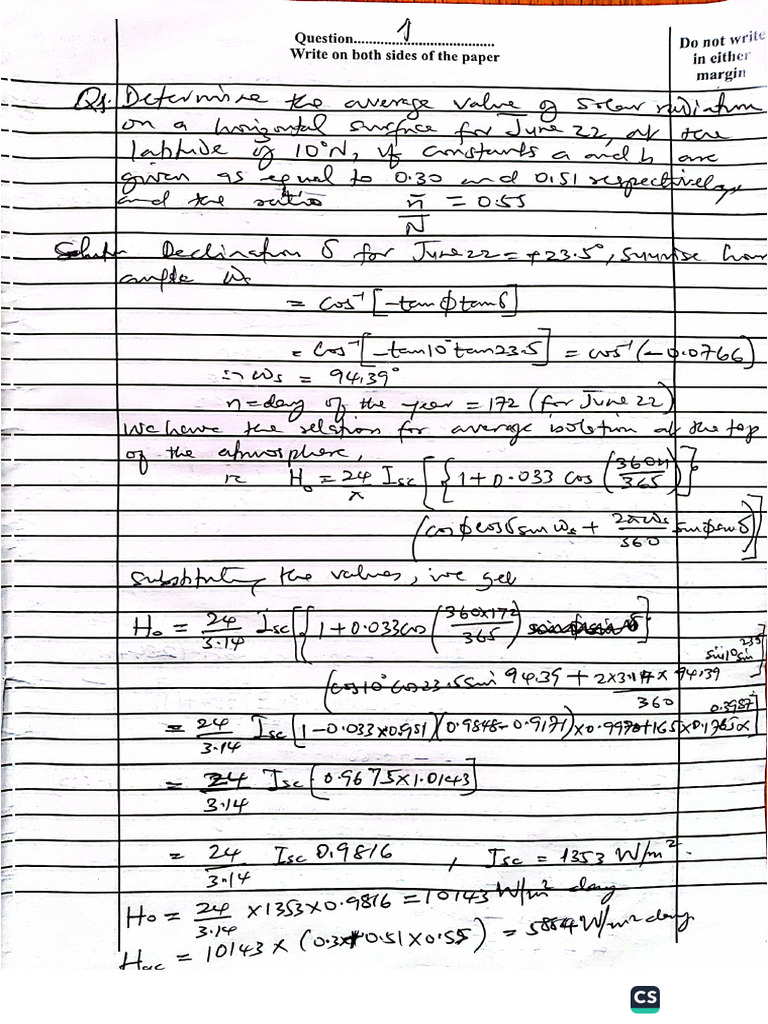 Question 1
Write on both sides of the paper
Do not write
in either
margin
Q1. Determine the average value of solar radiation
on a horizontal surface for June 22, at the
latitude of 10°N, if constants a and b are
given as equal to 0.30 and 0.51 respectively,
and the ratio n̄/N = 0.55
Solution Declination δ for June 22 = +23.5°, sunrise hour
angle Ws
= Cos⁻¹[-tanϕtanδ]
= Cos⁻¹[-tan10°tan23.5] = cos⁻¹(-0.0766)
∴ Ws = 94.39°
n = day of the year = 172 (for June 22)
We have the relation for average isolation at the top
of the atmosphere,
H₀ = 24/π Isc[{1+0.033 cos(360n/365)}
(cosϕcosδsinWs + 2πWs/360 sinϕsinδ)]
substituting the values, we get
H₀ = 24/3.14 Isc[{1+0.033cos(360×172/365)}
(cos10°cos23.5sin 94.39 + 2×3.14×94.39/360 sin10 sin 23.5)]
= 24/3.14 Isc(1-0.033×0.981)(0.9848-0.9171)×0.9970+1.65×0.1765× 0.3987]
= 24/3.14 Isc[0.9675×1.0143]
= 24/3.14 Isc 0.9816, Isc = 1353 W/m².
H₀ = 24/3.14 ×1353×0.9816 = 10143 W/m² day
= 10143 × (0.3+0.51×0.55) = 5884 W/m² day
CS